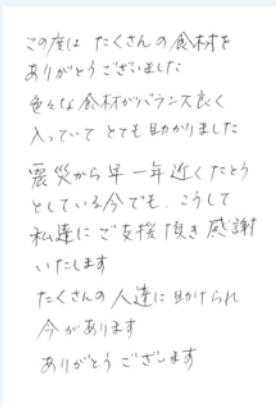 この度は たくさんの食材を
ありがとうございました
色々な食材がバランス良く
入っていて とても助かりました
震災から早一年近くたとう
としている今でも、こうして
私達にご支援頂き感謝
いたします
たくさんの人達に助けられ
今があります
ありがとうございます